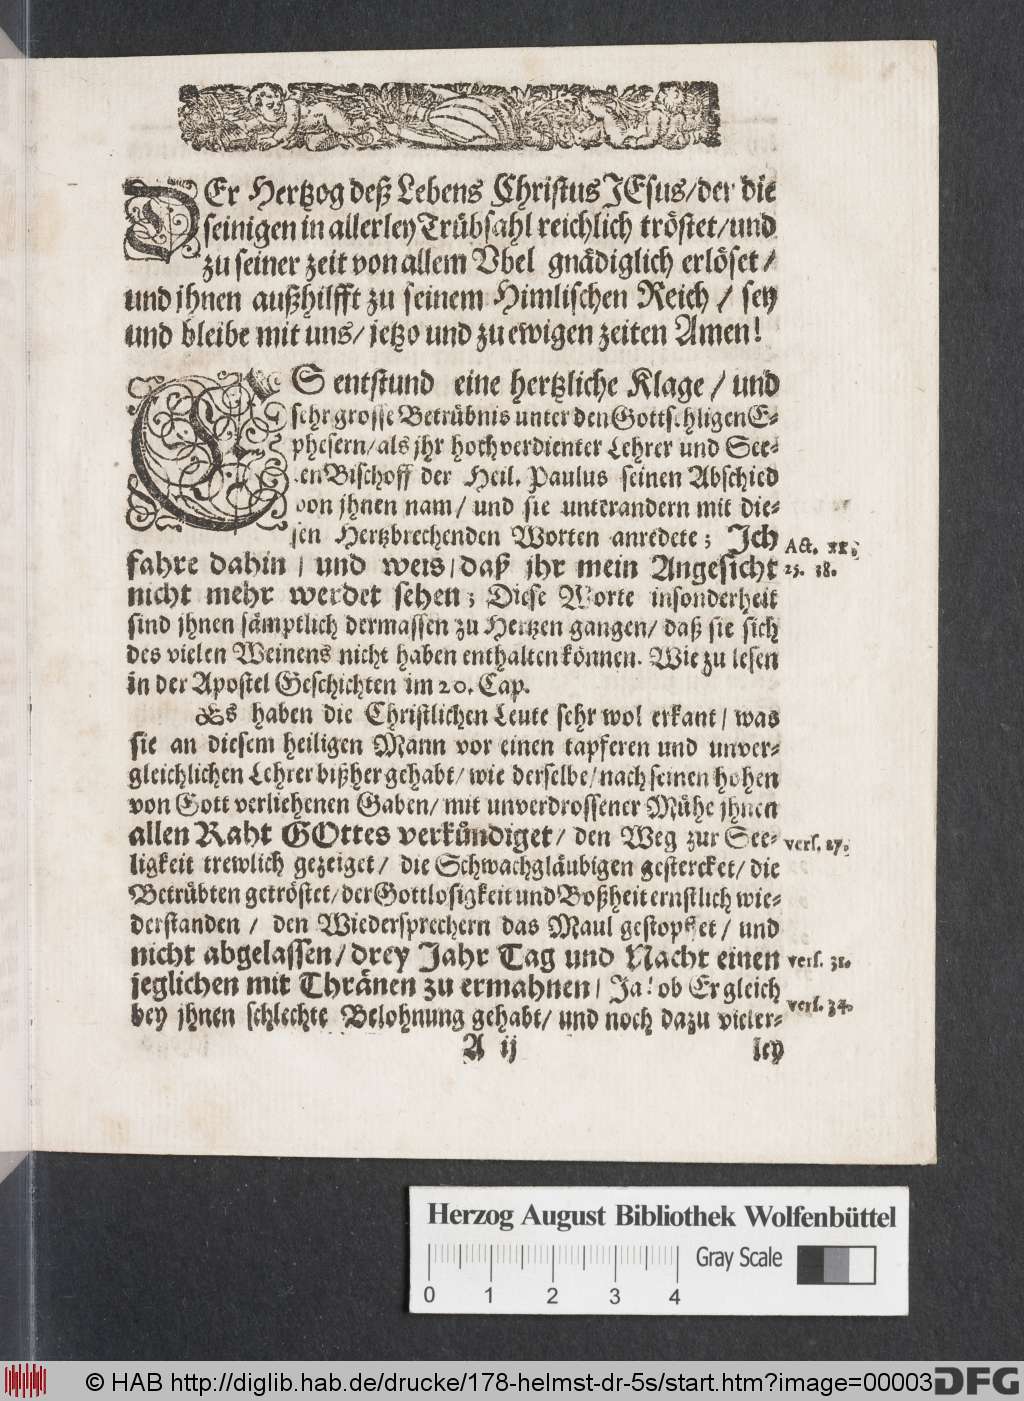 DEr Hertzog deß Lebens Christus JEsus/ der die
seinigen in allerley Trübsahl reichlich tröstet/ und
zu seiner zeit von allem Vbel gnädiglich erlöset/
und jhnen außhilfft zu seinem Himlischen Reich/ sey
und bleibe mit uns/ jetzo und zu ewigen zeiten Amen!
ES entstund eine hertzliche Klage/ und
sehr grosse Betrübnis unter den Gottsehligen E-
phesern/ als jhr hochverdienter Lehrer und See-
len Bischoff der Heil. Paulus seinen Abschied
von jhnen nam/ und sie unterandern mit die-
sen Hertzbrechenden Worten anredete; Jch
fahre dahin/ und weis/ daß jhr mein Angesicht
nicht mehr werdet sehen; Diese Worte insonderheit
sind jhnen sämptlich dermassen zu Hertzen gangen/ daß sie sich
des vielen Weinens nicht haben enthalten können. Wie zu lesen
in der Apostel Geschichten im 20. Cap.
Es haben die Christlichen Leute sehr wol erkant/ was
sie an diesem heiligen Mann vor einen tapferen und unver-
gleichlichen Lehrer bißher gehabt/ wie derselbe/ nach seinen hohen
von Gott verliehenen Gaben/ mit unverdrossener Mühe jhnen
allen Raht GOttes verkündiget/ den Weg zur See-
ligkeit trewlich gezeiget/ die Schwachgläubigen gestercket/ die
Betrübten getröstet/ der Gottlosigkeit und Boßheit ernstlich wie-
derstanden/ den Wiedersprechern das Maul gestopffet/ und
nicht abgelassen/ drey Jahr Tag und Nacht einen
jeglichen mit Thränen zu ermahnen/ Ja! ob Er gleich
bey jhnen schlechte Belohnung gehabt/ und noch dazu vieler-
A ij
ley
Act. 
25. 38.
vers. 27.
vers. 31.
vers. 34.
Herzog August Bibliothek Wolfenbüttel
Gray Scale
0 1 2 3 4
© HAB http://diglib.hab.de/drucke/178-helmst-dr-5s/start.htm?image=00003
DFG